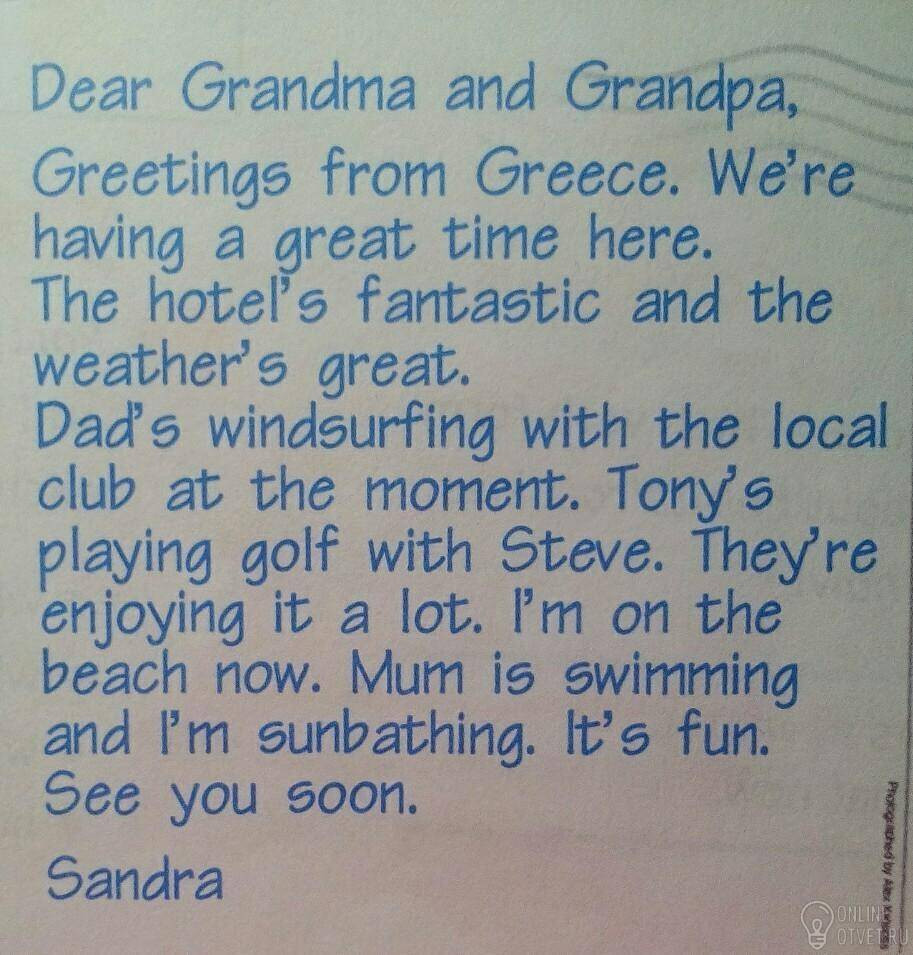 Dear Grandma and Grandpa,
Greetings from Greece. We're
having a great time here.
The hotel's fantastic and the
weather's great.
Dad's windsurfing with the local
club at the moment. Tony's
playing golf with Steve. They're
enjoying it a lot. I'm on the
beach now. Mum is swimming
and I'm sunbathing. It's fun.
See you soon.
Sandra
Photographed by Alex
ONLIN
OTVET.RU